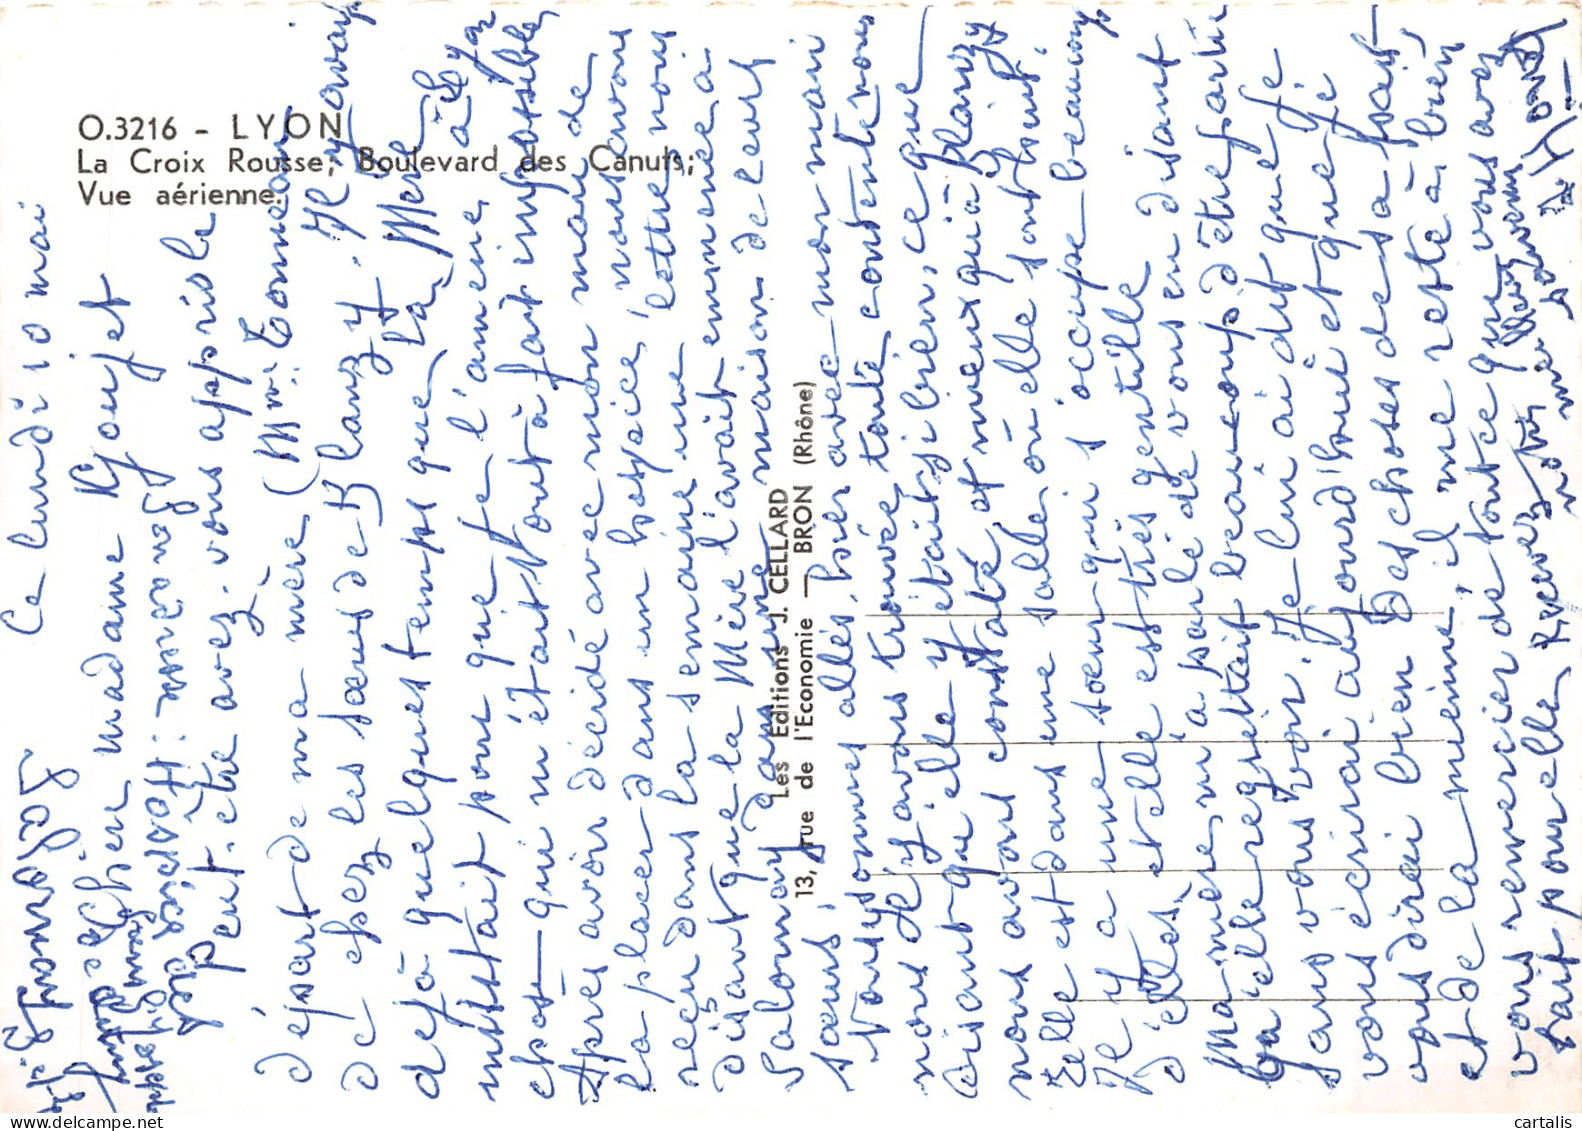 O.3216 - LYON
La Croix Rousse; Boulevard des Canuts;
Vue aérienne.
Les Editions J. CELLARD
13, rue de l'Economie — BRON (Rhône)
Ce lundi 10 mai
Chère madame Goujet
peut-être avez-vous appris le
départ de ma mère (Mme Tonneau)
de chez les sœurs de Blanzy. Il y avait
déjà quelques temps que la Mère
insistait pour que je l'amène à Lyon
chose qui m'était tout à fait impossible,
Après avoir décidé avec mon mari de
la placer dans un hospice, nous avons
reçu dans la semaine une lettre nous
disant que la Mère l'avait emmenée à
Salornay dans une maison de leurs
sœurs,
Nous y sommes allés, hier avec mon mari
nous l'avons trouvée toute contente nous
disant qu'elle y était si bien, ce que
nous avons constaté, et mieux qu'à Blanzy
Elle est dans une salle où elle sont huit.
Il y a une sœur qui s'occupe beaucoup
d'elles, et elle est très gentille
Ma mère m'a parlé de vous en disant
qu'elle regrettait beaucoup d'être partie
sans vous voir. Je lui ai dit que je
vous écrirai aujourd'hui et que je
vous dirai bien des choses de sa part
et de la mienne, il me reste à bien
vous remercier de tout ce que vous avez
fait pour elle. Recevez